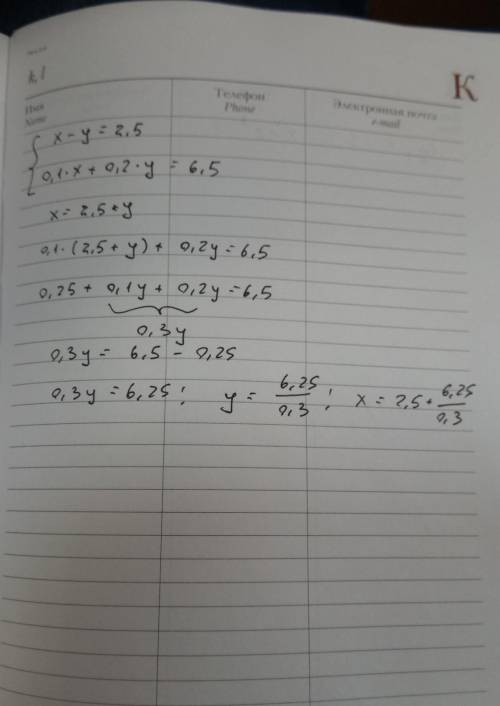 k, l
K
Имя Телефон Электронная почта
Name Phone e-mail
x - y = 2,5
0,1·x + 0,2·y = 6,5
x = 2,5 + y
0,1·(2,5 + y) + 0,2y = 6,5
0,25 + 0,1y + 0,2y = 6,5
0,3y
0,3y = 6,5 - 0,25
0,3y = 6,25; y = 6,25/0,3; x = 2,5 + 6,25/0,3